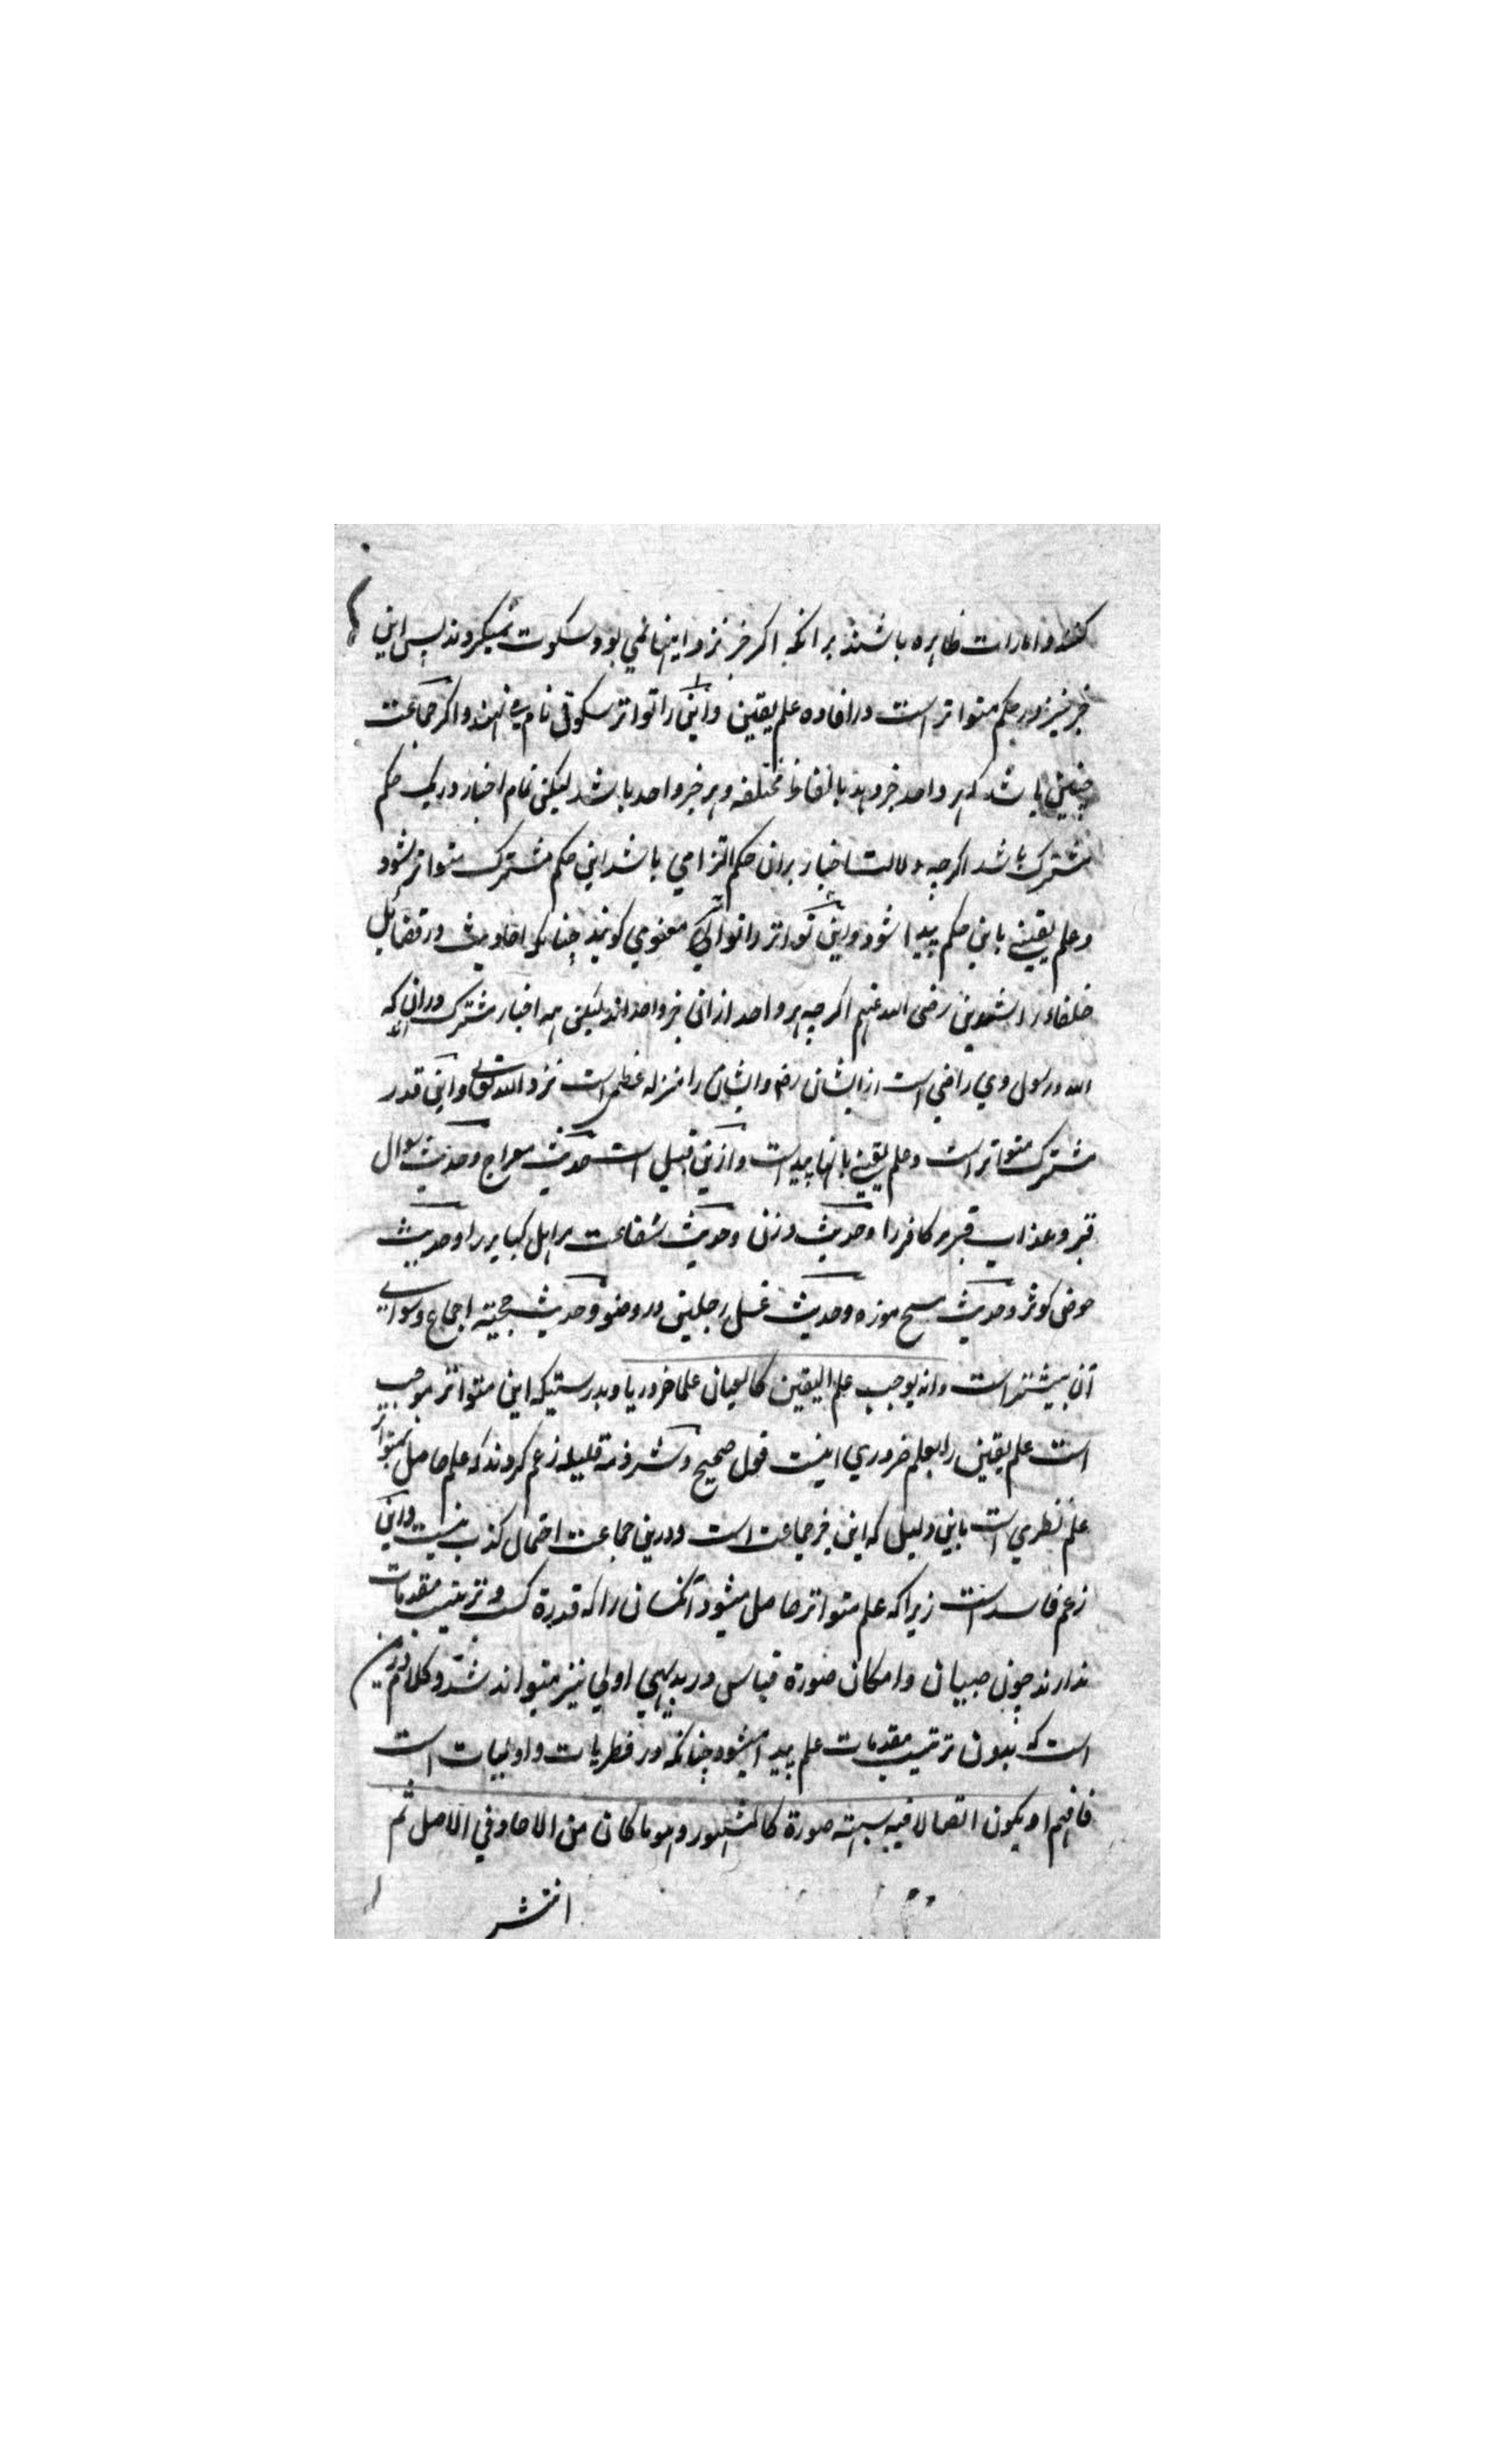 کنند و امارات ظاهره باشند برانکه اکر خبر نزد اینها نمی بود سکوت نمیکردند پس این
خبر نیز در حکم متواتر است در افاده علم یقین و این را تواتر سکوتی نام می نهند و اکر جماعت
چنین باشد که هر واحد خبر دهد بالفاظ مختلفه و هر خبر واحد باشد لیکن تمام اخبار در یک حکم
مشترک باشد اکرچه دلالت اخبار بران حکم التزامي باشد این حکم مشترک متواتر شود
و علم یقینے باین حکم پیدا شود و این تواتر را تواتر معنوي کویند چنانکه احادیث در فضایل
خلفاء راشدین رضی الله عنهم اکرچه هر واحد ازان خبر واحد اند لیکن همه اخبار مشترک دران که
الله و رسول وي راضي است از ایشان رضه و ایشان را منزله عظمی است نزد الله تعالی و این قدر
مشترک متواتر است و علم یقینے بانها پیدا است و ازین قبیل است حدیث معراج و حدیث سوال
قبر و عذاب قبر مر کافر را و حدیث وزن و حدیث شفاعت مر اهل کبایر را و حدیث
حوض کوثر و حدیث مسح موزه و حدیث غسل رجلین در وضو و حدیث حجیة اجماع و سوائے
آن بیشتر است وانه یوجب علم الیقین کالعیان علما ضروریا و بدرستیکه این متواتر موجب
است علم یقین را بعلم ضروري اینست قول صحیح و شرذمة قلیله زعم کردند که علم حاصل بمتواتر
علم نظري است باین دلیل که این خبر جماعت است و درین جماعت احتمال کذب نیست و این
زعم فاسد است زیرا که علم متواتر حاصل میشود آنکسان را که قدرة کسب و ترتیب مقدمات
ندارند چون صبیان و امکان صورة قیاس در بدیهي اولي نیز میتواند شد و کلام درین
است که بدون ترتیب مقدمات علم پیدا میشود چنانکه در فطریات و اولیات است
فافهم او یکون اتصالا فیه شبهة صورة کالمشهور وهو ما کان من الاحاد في الاصل ثم
انتشر